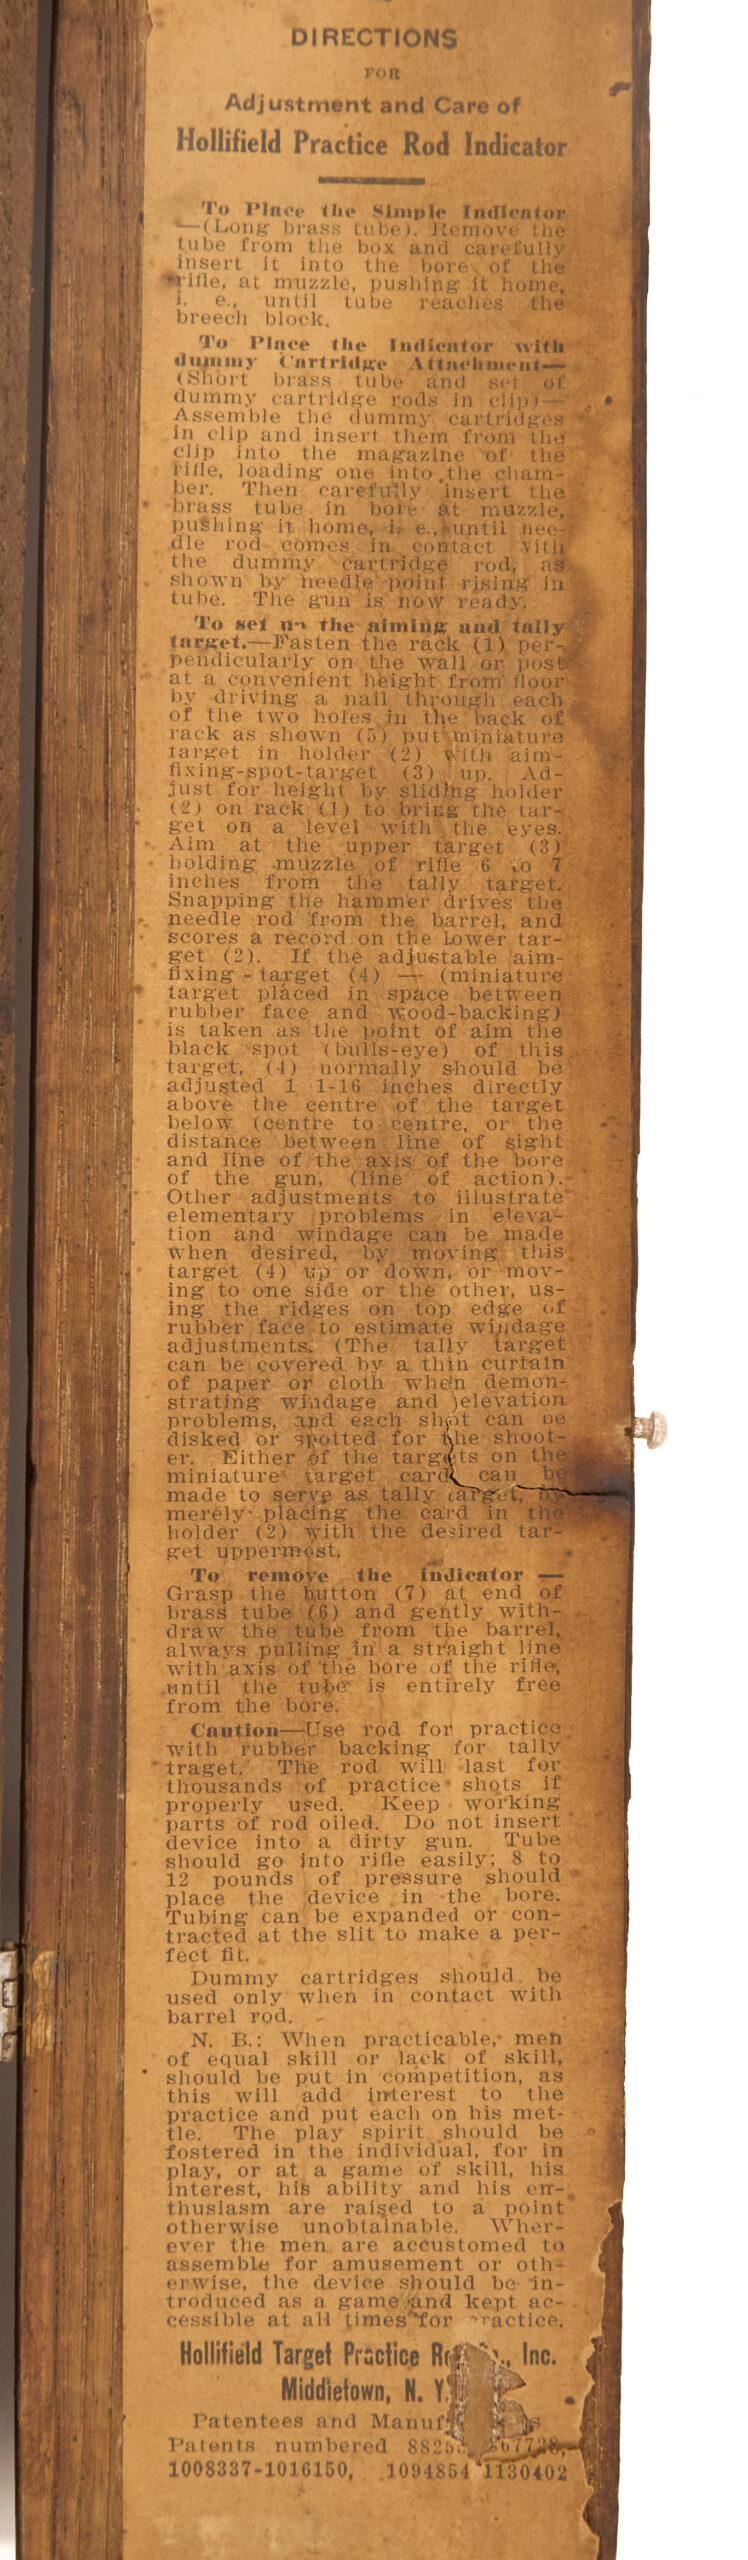 DIRECTIONS
FOR
Adjustment and Care of
Hollifield Practice Rod Indicator
To Place the Simple Indicator
—(Long brass tube). Remove the
tube from the box and carefully
insert it into the bore of the
rifle, at muzzle, pushing it home,
i. e., until tube reaches the
breech block.
To Place the Indicator with
dummy Cartridge Attachment—
(Short brass tube and set of
dummy cartridge rods in clip)—
Assemble the dummy cartridges
in clip and insert them from the
clip into the magazine of the
rifle, loading one into the cham-
ber. Then carefully insert the
brass tube in bore at muzzle,
pushing it home, i. e., until nee-
dle rod comes in contact with
the dummy cartridge rod, as
shown by needle point rising in
tube. The gun is now ready.
To set up the aiming and tally
target.—Fasten the rack (1) per-
pendicularly on the wall or post
at a convenient height from floor
by driving a nail through each
of the two holes in the back of
rack as shown (5) put miniature
target in holder (2) with aim-
fixing-spot-target (3) up. Ad-
just for height by sliding holder
(2) on rack (1) to bring the tar-
get on a level with the eyes.
Aim at the upper target (3)
holding muzzle of rifle 6 to 7
inches from the tally target.
Snapping the hammer drives the
needle rod from the barrel, and
scores a record on the Lower tar-
get (2). If the adjustable aim-
fixing - target (4) — (miniature
target placed in space between
rubber face and wood-backing)
is taken as the point of aim the
black spot (bulls-eye) of this
target, (4) normally should be
adjusted 1 1-16 inches directly
above the centre of the target
below (centre to centre, or the
distance between line of sight
and line of the axis of the bore
of the gun, (line of action).
Other adjustments to illustrate
elementary problems in eleva-
tion and windage can be made
when desired, by moving this
target (4) up or down, or mov-
ing to one side or the other, us-
ing the ridges on top edge of
rubber face to estimate windage
adjustments. (The tally target
can be covered by a thin curtain
of paper or cloth when demon-
strating windage and elevation
problems, and each shot can be
disked or spotted for the shoot-
er. Either of the targets on the
miniature target card can be
made to serve as tally target, by
merely placing the card in the
holder (2) with the desired tar-
get uppermost.
To remove the indicator —
Grasp the button (7) at end of
brass tube (6) and gently with-
draw the tube from the barrel,
always pulling in a straight line
with axis of the bore of the rifle,
until the tube is entirely free
from the bore.
Caution—Use rod for practice
with rubber backing for tally
traget. The rod will last for
thousands of practice shots if
properly used. Keep working
parts of rod oiled. Do not insert
device into a dirty gun. Tube
should go into rifle easily; 8 to
12 pounds of pressure should
place the device in the bore.
Tubing can be expanded or con-
tracted at the slit to make a per-
fect fit.
Dummy cartridges should be
used only when in contact with
barrel rod.
N. B.: When practicable, men
of equal skill or lack of skill,
should be put in competition, as
this will add interest to the
practice and put each on his met-
tle. The play spirit should be
fostered in the individual, for in
play, or at a game of skill, his
interest, his ability and his en-
thusiasm are raised to a point
otherwise unobtainable. Wher-
ever the men are accustomed to
assemble for amusement or oth-
erwise, the device should be in-
troduced as a game and kept ac-
cessible at all times for practice.
Hollifield Target Practice Inc.
Middletown, N. Y.
Patentees and
Patents numbered
1008337-1016150, 1094854 1130402